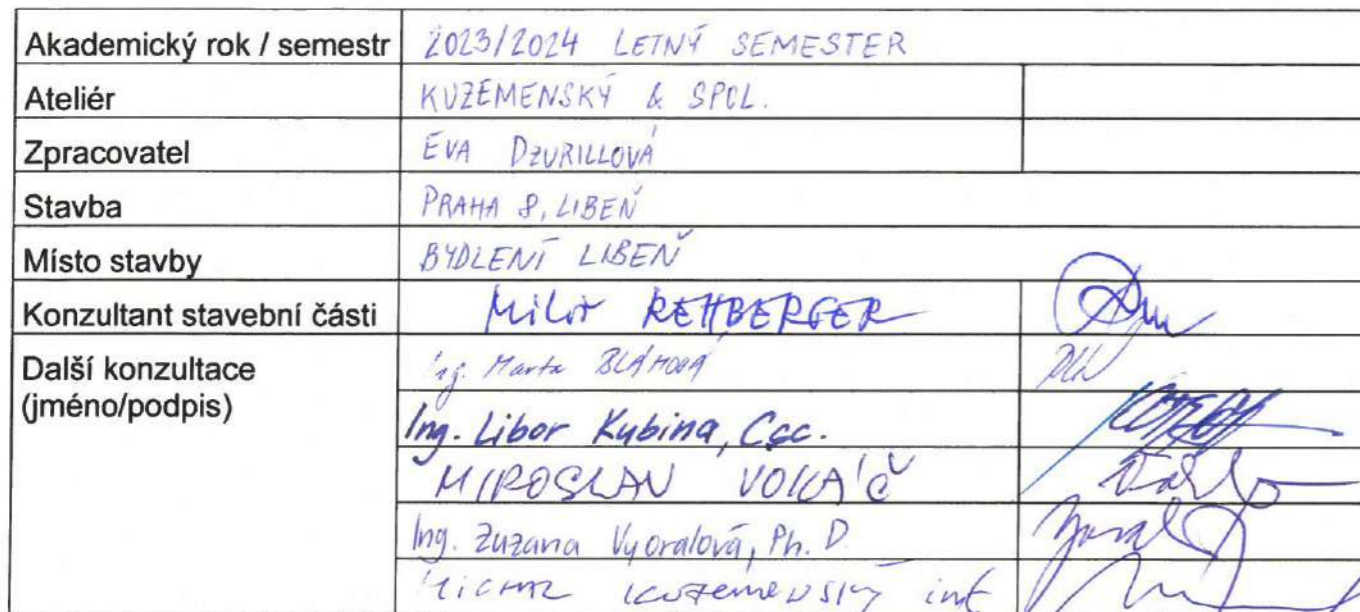 Akademický rok / semestr 2023/2024 LETNÝ SEMESTER
Ateliér KUZEMENSKÝ & SPOL.
Zpracovatel EVA DZURILLOVÁ
Stavba PRAHA 8, LIBEŇ
Místo stavby BYDLENÍ LIBEŇ
Konzultant stavební části REHBERGER
Další konzultace Ing. Marta BLÁHOVÁ
(jméno/podpis) Ing. Libor Kubina, Csc.
MIROSLAV VOKÁČ
Ing. Zuzana Vyoralová, Ph. D.
MICHAL KUZEMENSKÝ